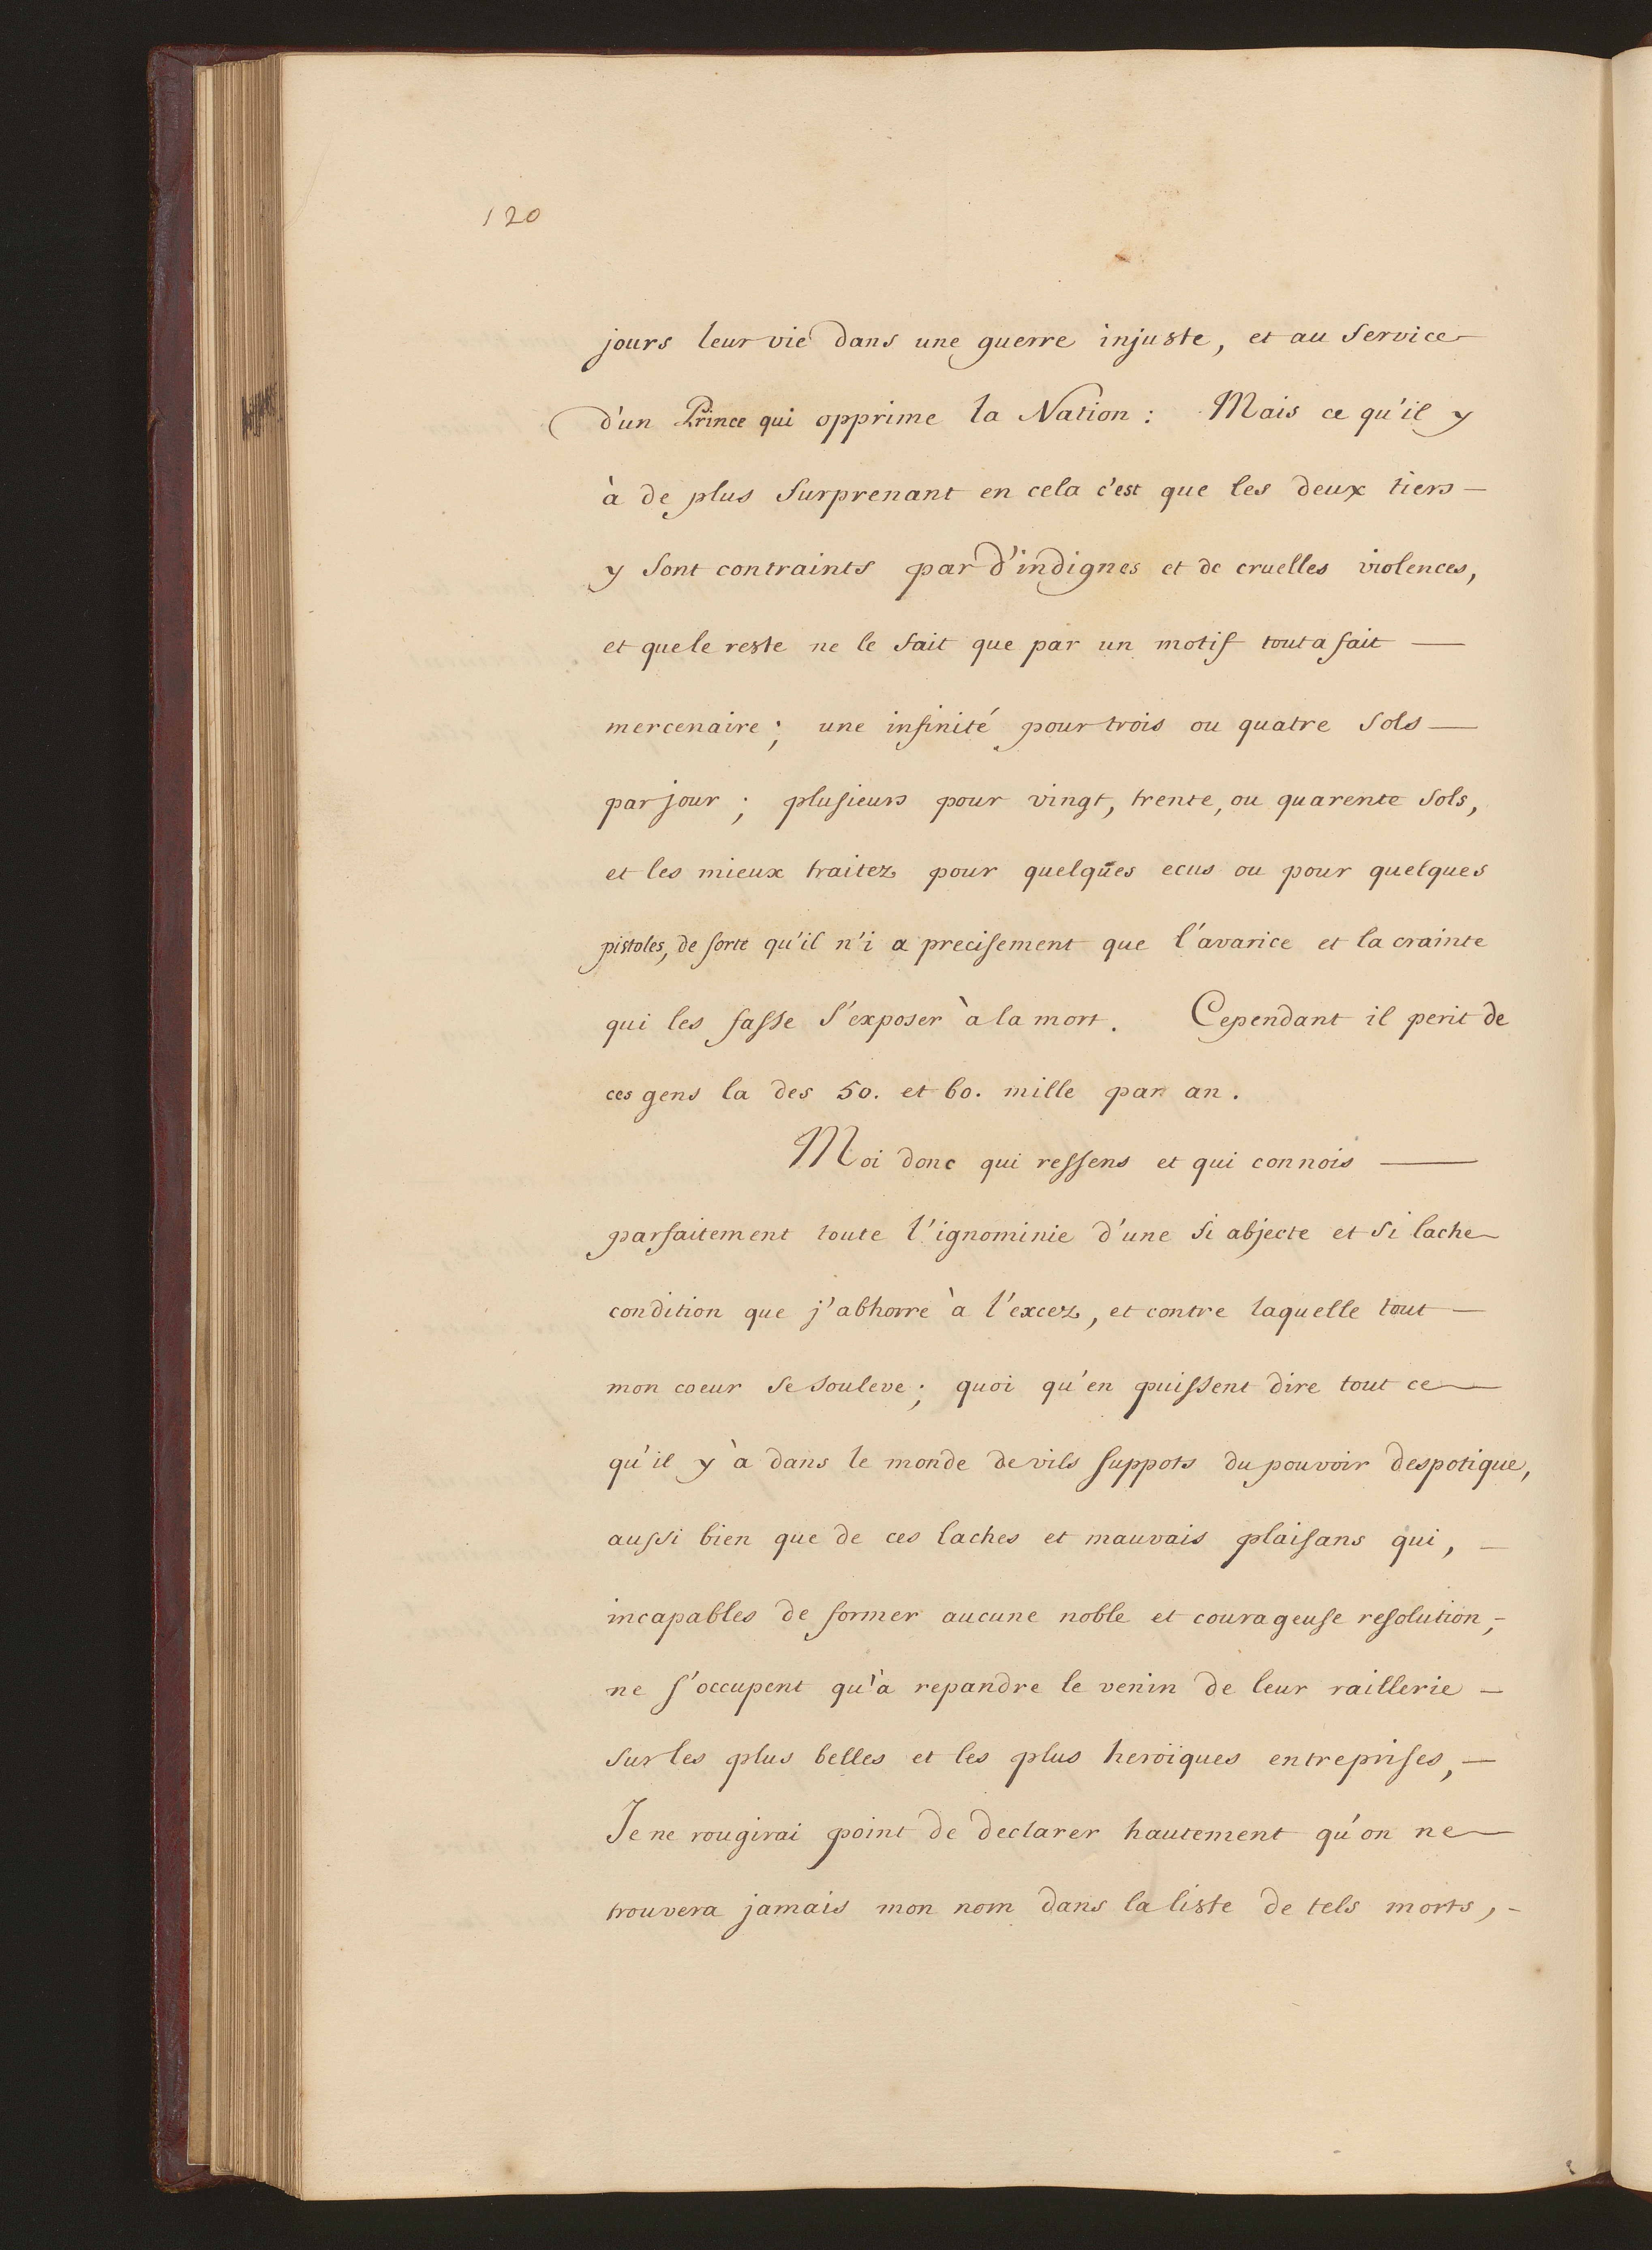 120
jours leur vie dans une guerre injuste, et au service
d'un Prince qui opprime la Nation : Mais ce qu'il y
à de plus surprenant en cela c'est que les deux tiers —
y sont contraints par d'indignes et de cruelles violences,
et que le reste ne le fait que par un motif tout a fait —
mercenaire ; une infinité pour trois ou quatre sols —
par jour ; plusieurs pour vingt, trente, ou quarente sols,
et les mieux traitez pour quelques ecus ou pour quelques
pistoles, de sorte qu'il n'i a precisement que l'avarice et la crainte
qui les fasse s'exposer à la mort. Cependant il perit de
ces gens la des 50. et 60. mille par an.
Moi donc qui ressens et qui connois —
parfaitement toute l'ignominie d'une si abjecte et si lache
condition que j'abhorre à l'excez, et contre laquelle tout —
mon coeur se souleve ; quoi qu'en puissent dire tout ce
qu'il y à dans le monde de vils suppots du pouvoir despotique,
aussi bien que de ces laches et mauvais plaisans qui, —
incapables de former aucune noble et courageuse resolution, -
ne s'occupent qu'à repandre le venin de leur raillerie —
sur les plus belles et les plus heroïques entreprises, —
Je ne rougirai point de declarer hautement qu'on ne
trouvera jamais mon nom dans la liste de tels morts, -